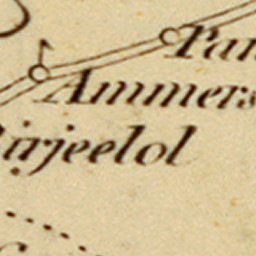 Pan
Ammers
Birjeelol